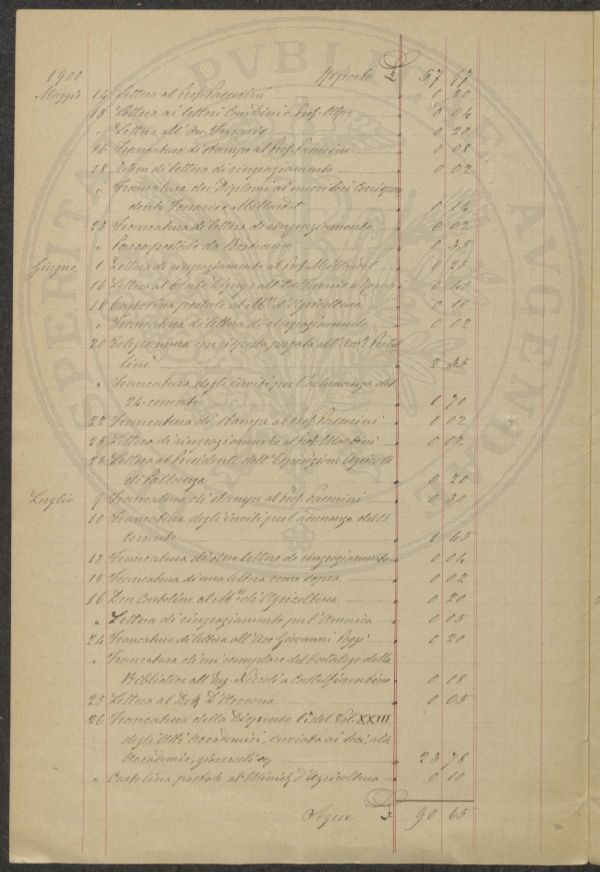 PVBLICAE
PROSPERITATI AVGENDAE
1900 Riporto £ 57 97
Maggio 14 Lettera al Prof. Passerini " 0 20
15 Lettera ai lettori Con. Dini e Prof. Alpe " 0 04
" Lettera all' " 0 20
16 Francatura di stampe al Prof. Passerini " 0 08
18 di lettera di ringraziamento " 0 02
" Francatura dei Diplomi ai nuovi Soci Corrispon
denti e Millardet " 0 14
23 Francatura di lettera di ringraziamento " 0 02
" Pacco postale da Bordeaux " 0 35
Giugno 1 Lettera di ringraziamento al Prof. Millardet " 0 25
16 Lettera al Conte all' " 0 40
18 Cartolina postale al Mº. d'Agricoltura " 0 10
" Francatura di lettera di ringraziamento " 0 02
20 Telegramma con risposta pagata all'
lini " 2 35
" Francatura degli inviti per l'adunanza del
24 corrente " 1 70
22 Francatura di stampe al Prof. Passerini " 0 02
25 Lettera di ringraziamento al Prof. " 0 02
26 Lettera al Presidente dell' Esposizione Agricola
di Pallanza " 0 20
Luglio 9 Francatura di stampe al Prof. Passerini " 0 30
10 Francatura degli inviti per l'adunanza del 15
corrente " 1 65
13 Francatura di due lettere di ringraziamento " 0 04
15 Francatura di una lettera come sopra " 0 02
16 Due Cartoline al Mº. di Agricoltura " 0 20
" Lettera di ringraziamento per l'America " 0 05
24 Francatura di lettera all' Avv. Giovanni " 0 20
" Francatura di un esemplare del Catalogo della
Biblioteca all' Ing. Niccoli a Castelfiorentino " 0 18
25 Lettera al Dott. D'Ancona " 0 05
26 Francatura della Dispensa 1ª. del Vol. XXIII
degli Atti Accademici, inviata ai Soci, alle
Accademie, giornali ec. " 23 78
" Cartolina postale al Minist. d'Agricoltura " 0 10
Segue £ 90 65